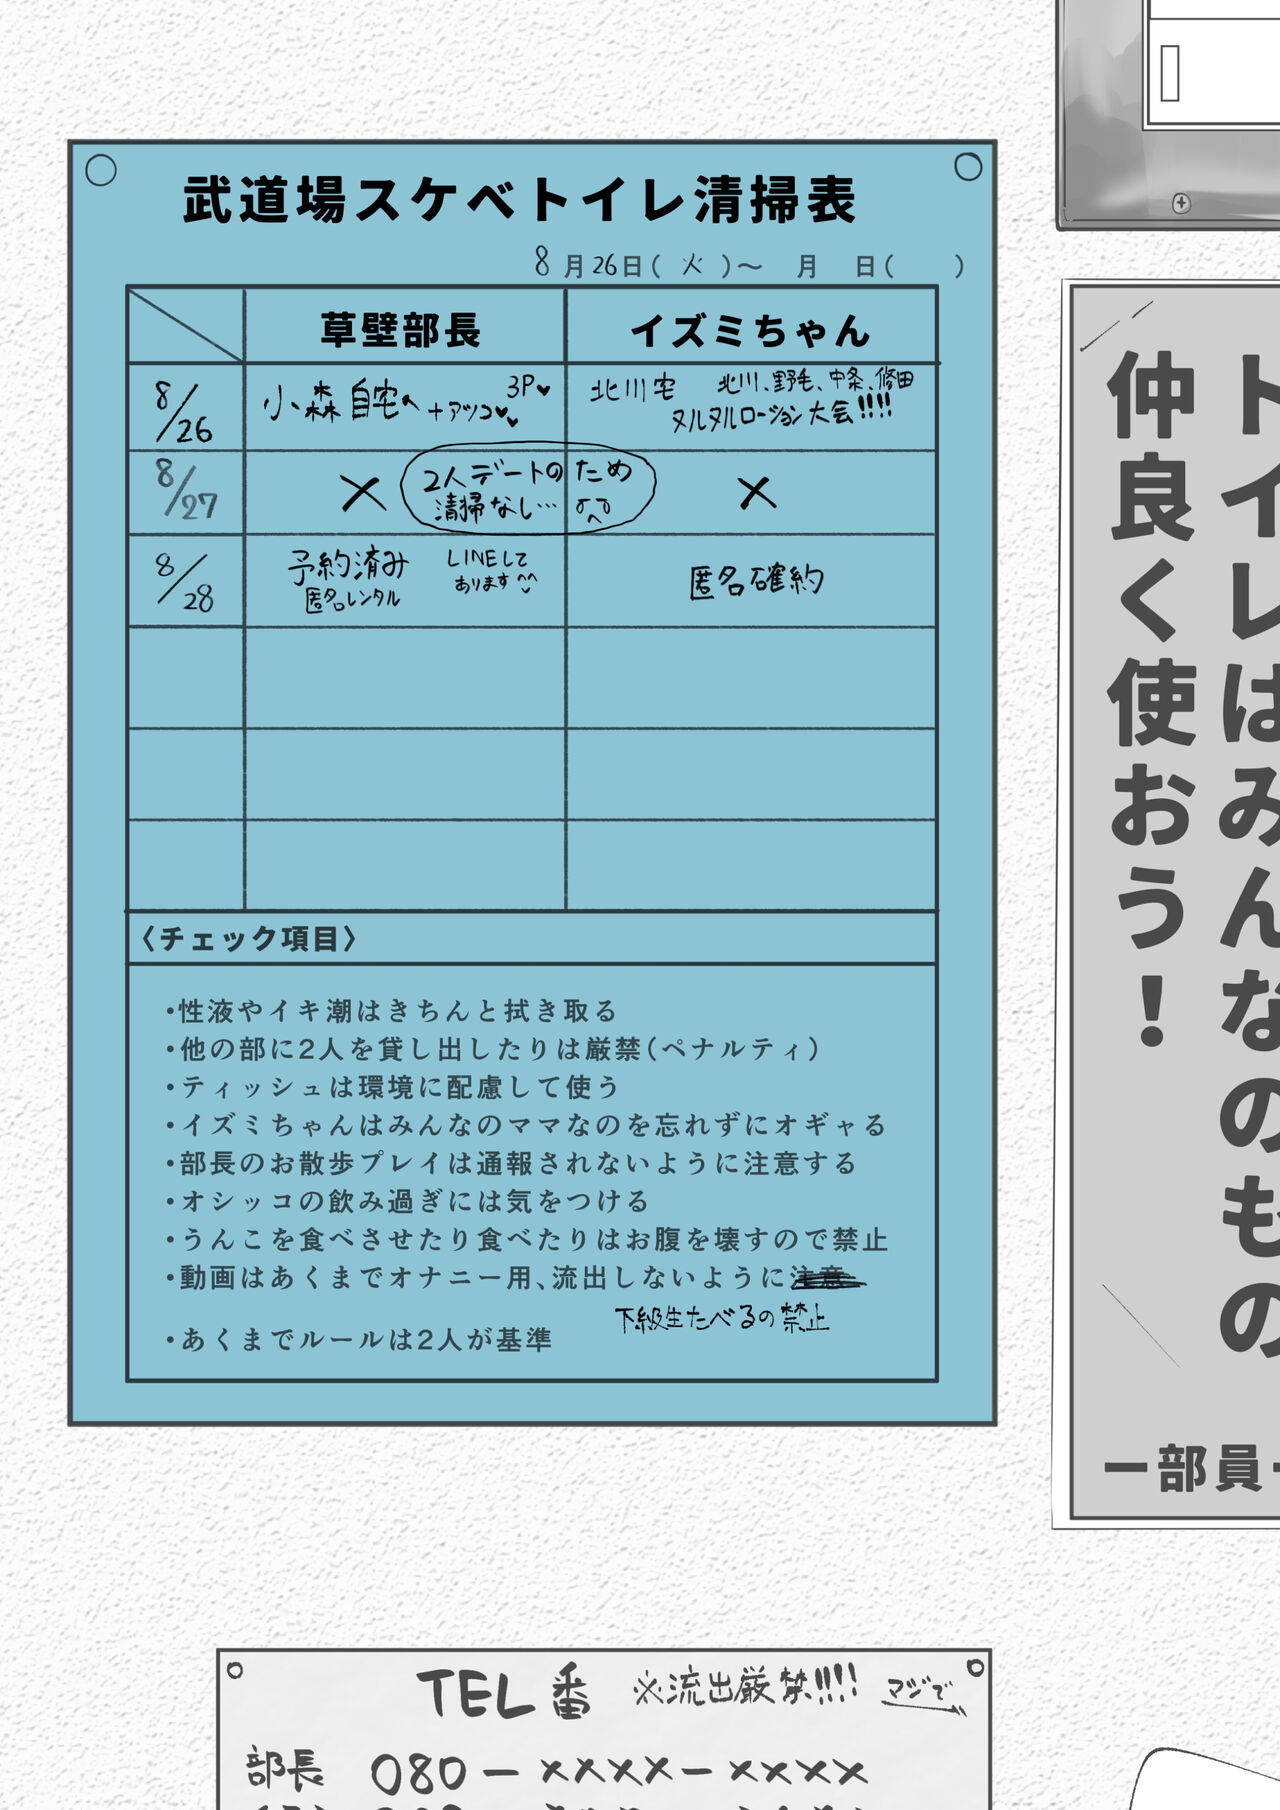 武道場スケベトイレ清掃表
8月26日(火)〜 月 日( )
草壁部長 イズミちゃん
8/26 小森自宅へ +アツコ♥ 3P♥ 北川宅 北川、野毛、中条、修田
ヌルヌルローション大会!!!!
8/27 × 2人デートのため ×
清掃なし…
8/28 予約済み LINEして 匿名確約
匿名レンタル あります^^
〈チェック項目〉
・性液やイキ潮はきちんと拭き取る
・他の部に2人を貸し出したりは厳禁(ペナルティ)
・ティッシュは環境に配慮して使う
・イズミちゃんはみんなのママなのを忘れずにオギャる
・部長のお散歩プレイは通報されないように注意する
・オシッコの飲み過ぎには気をつける
・うんこを食べさせたり食べたりはお腹を壊すので禁止
・動画はあくまでオナニー用、流出しないように注意
下級生たべるの禁止
・あくまでルールは2人が基準
トイレはみんなのもの
仲良く使おう！
ー部員
TEL番 ※流出厳禁!!!! マジで
部長 080-××××-××××